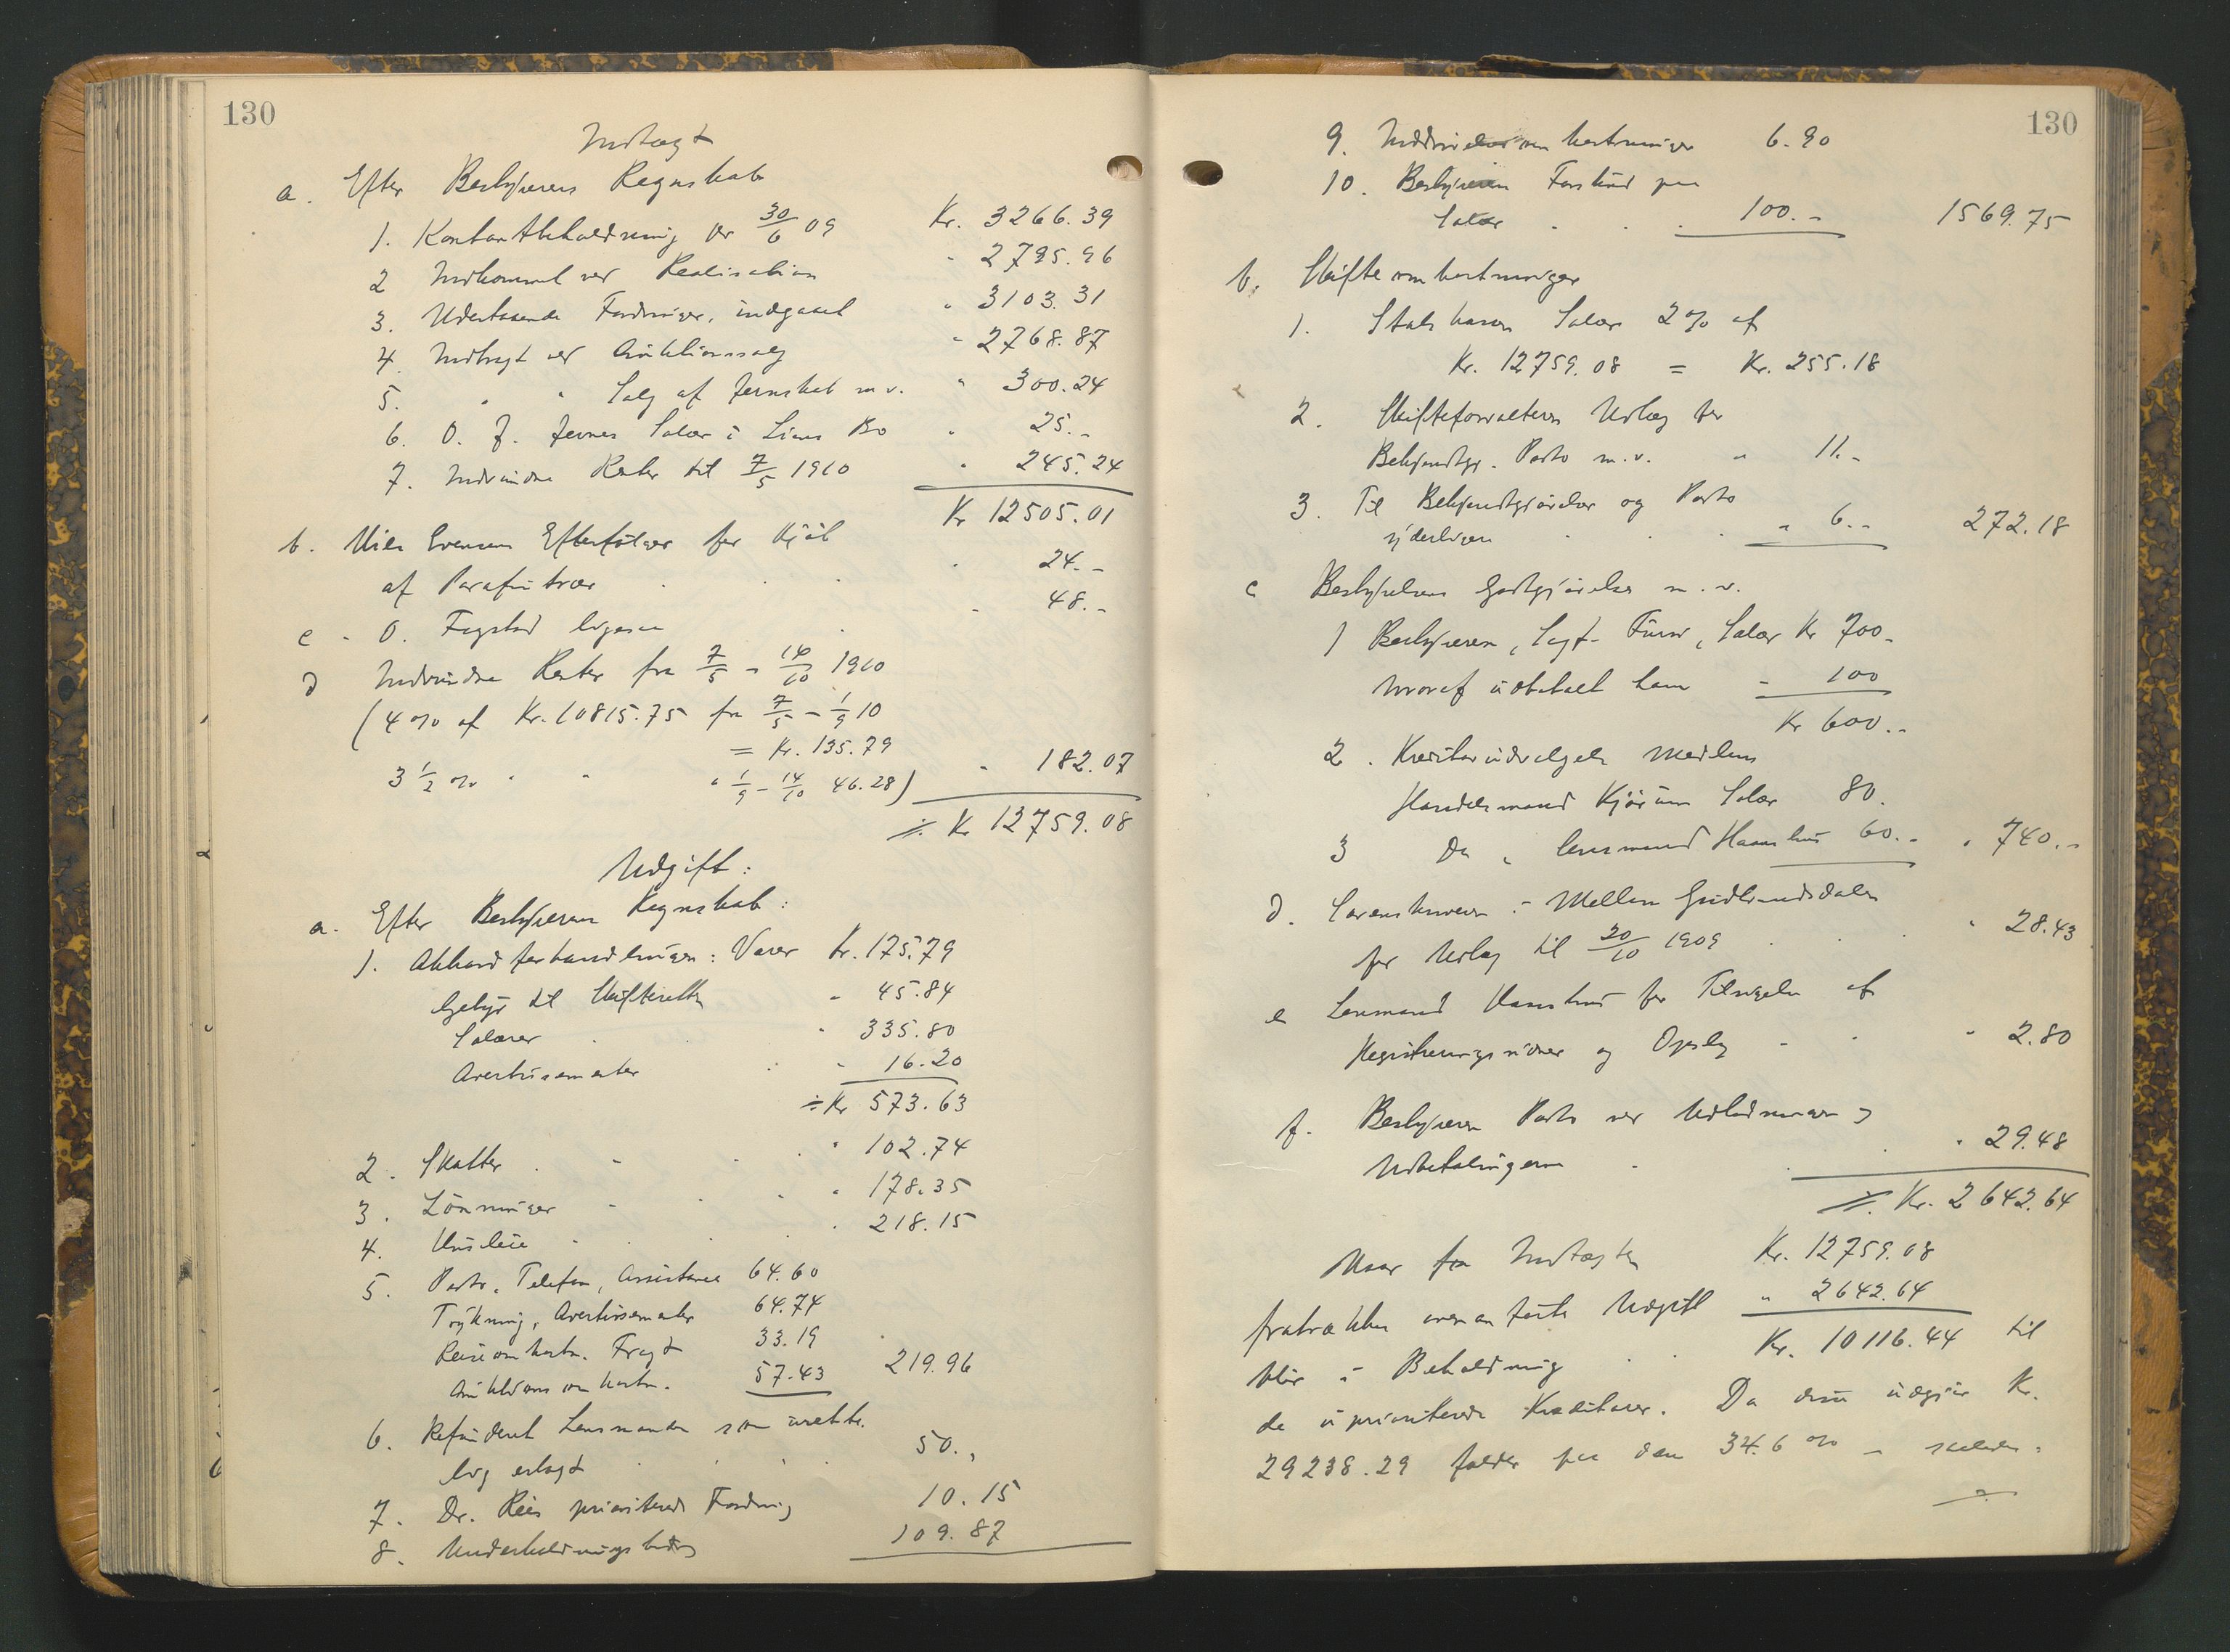 130
Indtægt
a. Efter Bestyrerens Regnskab
1. Kontantbeholdning pr 30/6 09 Kr. 3266.39
2 Indkommet ved Realisation " 2795.96
3. Udestaaende Fordringer, indgaaet " 3103.31
4. Indtægt ved Auktionssalg " 2768.87
5. " " Salg af Jernskab m.v. " 300.24
6. O. J. Jevnes Salær i Liens Bo " 25.-
7. Indvundne Renter til 7/5 1910 " 245.24
Kr 12505.01
b. Nils Evensens Efterfølger for Kjøb
af Parafin " 24.-
c. O. Fogstad ligesaa " 48.-
d Indvundne Renter fra 7/5 - 14/10 1910
(4 % af Kr. 10815.75 fra 7/5 - 1/9 10
= Kr. 135.79
3 1/2 % " " " 1/9 - 14/10 46.28) " 182.07
÷. Kr 12759.08
Udgift:
a. Efter Bestyrerens Regnskab:
1. Akkordforhandlingen: Varer Kr. 175.79
Gebyr til Skifteretten " 45.84
Salærer " 335.80
Avertissementer " 16.20
÷ Kr 573.63
2. Skatter " 102.74
3. Lönninger " 178.35
4. Husleie " 218.15
5. Porto, Telefon, Assistance 64.60
Trykning, Avertissementer 64.74
Reiseomkostn. Fragt 33.19
Auktionsomkostn. 57.43 219.96
6. Refunderet Lensmanden som urette-
lig erlagt 50.,
7. Dr. Riis prioriterede Fordring 10.15
8. Underholdningsbidrag 109.87
130
9. Inddrivelsesomkostninger 6.90
10. Bestyreren Forskud paa
Salær 100.- 1569.75
b. Skifteomkostninger
1. Statskassen Salær 2 % af
Kr. 12759.08 = Kr. 255.18
2. Skifteforvalteren Udlæg for
Bekjendtgj. Porto m.v. " 11.-
3. Til Bekjendtgjørelser og Porto
yderligere " 6.- 272.18
c Bestyrelsens Godtgjørelse m.v.
1 Bestyreren, Sagf. Salær Kr 700-
hvoraf udbetalt ham " 100
Kr 600..
2. Kreditorudvalgets Medlem
Handelsmand Kjörum Salær 80.
3 Do " lensmand 60.- " 740.-
d. Sorenskriveren i Mellem Gudbrandsdalen
for Udlæg til 20/10 1909 " 28.43
e Lensmand for Tilsigelse af
Registreringsvidner og Opslag " 2.80
f. Bestyreren Porto ved Udlodningen og
Udbetalingerne " 29.48
÷. Kr. 2642.64
Naar fra Indtægten Kr. 12759.08
fratrækkes ovenanførte Udgift " 2642.64
blir i Beholdning Kr. 10116.44 til
de uprioriterede Kreditorer. Da disse udgjør Kr.
29238.29 falder paa dem 34.6 %